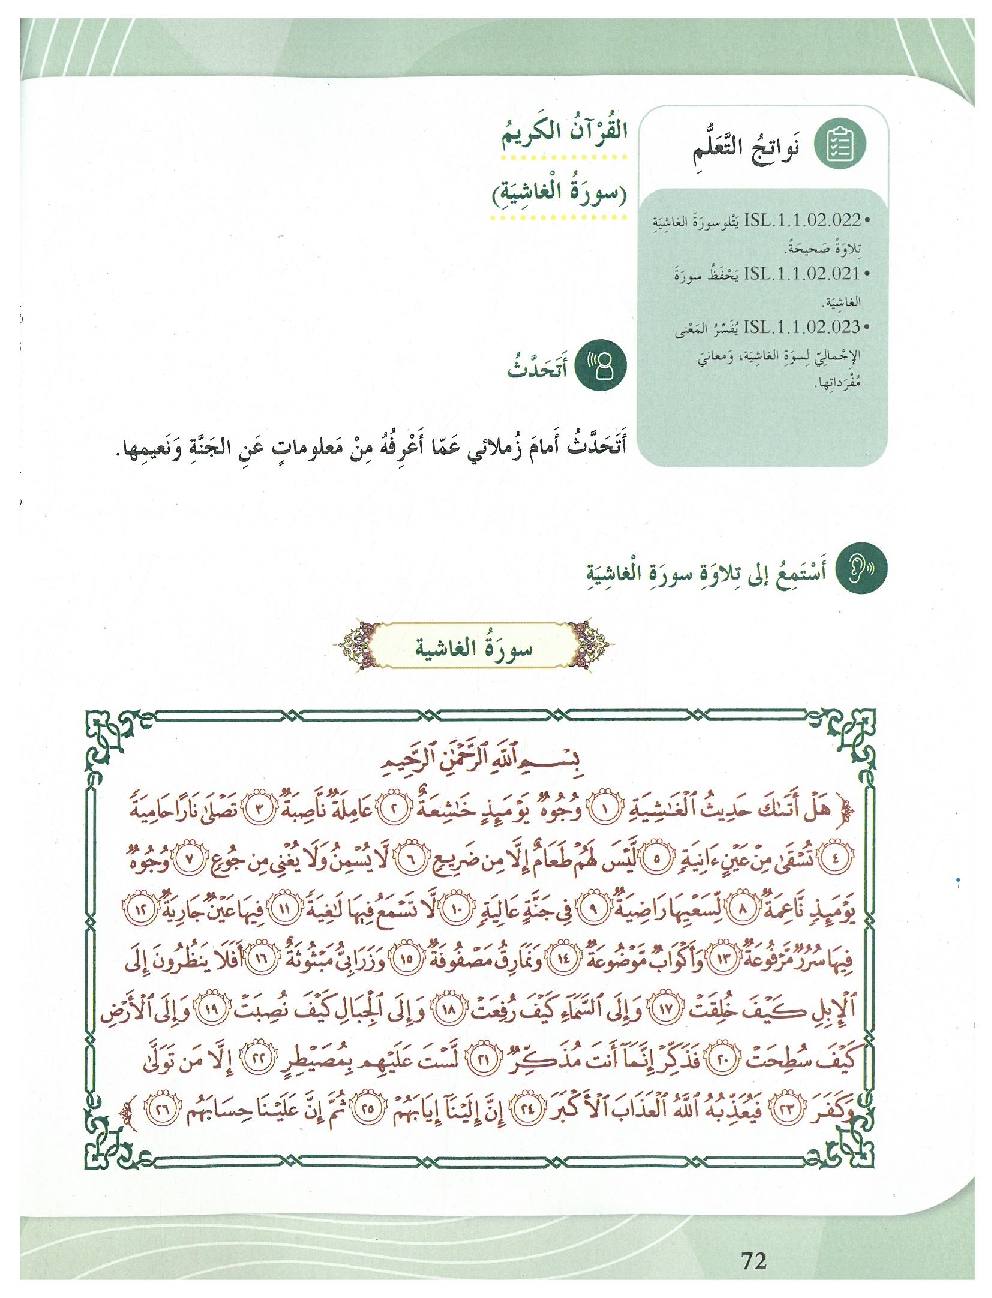 نَواتِجُ التَّعَلُّمِ
•ISL.1.1.02.022 يَتْلو سورَةَ الغاشِيَةِ
تِلاوَةً صَحيحَةً.
•ISL.1.1.02.021 يَحْفَظُ سورَةَ
الغاشِيَةِ.
•ISL.1.1.02.023 يُفَسِّرُ المَعْنى
الإِجْماليَّ لِسوَةِ الغاشِيَةِ، وَمَعانيَ
مُفْرَداتِها.
القُرْآنُ الكَريمُ
(سورَةُ الْغاشِيَةِ)
أَتَحَدَّثُ
أَتَحَدَّثُ أَمامَ زُملائي عَمّا أَعْرِفُهُ مِنْ مَعلوماتٍ عَنِ الجَنَّةِ وَنَعيمِها.
أَسْتَمِعُ إلى تِلاوَةِ سورَةِ الْغاشِيَةِ
سورَةُ الغاشية
بِسْمِ اللَّهِ الرَّحْمَٰنِ الرَّحِيمِ
﴿ هَلْ أَتَىٰكَ حَدِيثُ الْغَٰشِيَةِ ١ وُجُوهٌ يَوْمَئِذٍ خَٰشِعَةٌ ٢ عَامِلَةٌ نَّاصِبَةٌ ٣ تَصْلَىٰ نَارًا حَامِيَةً
٤ تُسْقَىٰ مِنْ عَيْنٍ ءَانِيَةٍ ٥ لَّيْسَ لَهُمْ طَعَامٌ إِلَّا مِن ضَرِيعٍ ٦ لَّا يُسْمِنُ وَلَا يُغْنِي مِن جُوعٍ ٧ وُجُوهٌ
يَوْمَئِذٍ نَّاعِمَةٌ ٨ لِّسَعْيِهَا رَاضِيَةٌ ٩ فِي جَنَّةٍ عَالِيَةٍ ١٠ لَّا تَسْمَعُ فِيهَا لَٰغِيَةً ١١ فِيهَا عَيْنٌ جَارِيَةٌ ١٢
فِيهَا سُرُرٌ مَّرْفُوعَةٌ ١٣ وَأَكْوَابٌ مَّوْضُوعَةٌ ١٤ وَنَمَارِقُ مَصْفُوفَةٌ ١٥ وَزَرَابِيُّ مَبْثُوثَةٌ ١٦ أَفَلَا يَنظُرُونَ إِلَى
الْإِبِلِ كَيْفَ خُلِقَتْ ١٧ وَإِلَى السَّمَاءِ كَيْفَ رُفِعَتْ ١٨ وَإِلَى الْجِبَالِ كَيْفَ نُصِبَتْ ١٩ وَإِلَى الْأَرْضِ
كَيْفَ سُطِحَتْ ٢٠ فَذَكِّرْ إِنَّمَا أَنتَ مُذَكِّرٌ ٢١ لَّسْتَ عَلَيْهِم بِمُصَيْطِرٍ ٢٢ إِلَّا مَن تَوَلَّىٰ
وَكَفَرَ ٢٣ فَيُعَذِّبُهُ اللَّهُ الْعَذَابَ الْأَكْبَرَ ٢٤ إِنَّ إِلَيْنَا إِيَابَهُمْ ٢٥ ثُمَّ إِنَّ عَلَيْنَا حِسَابَهُم ٢٦ ﴾
72